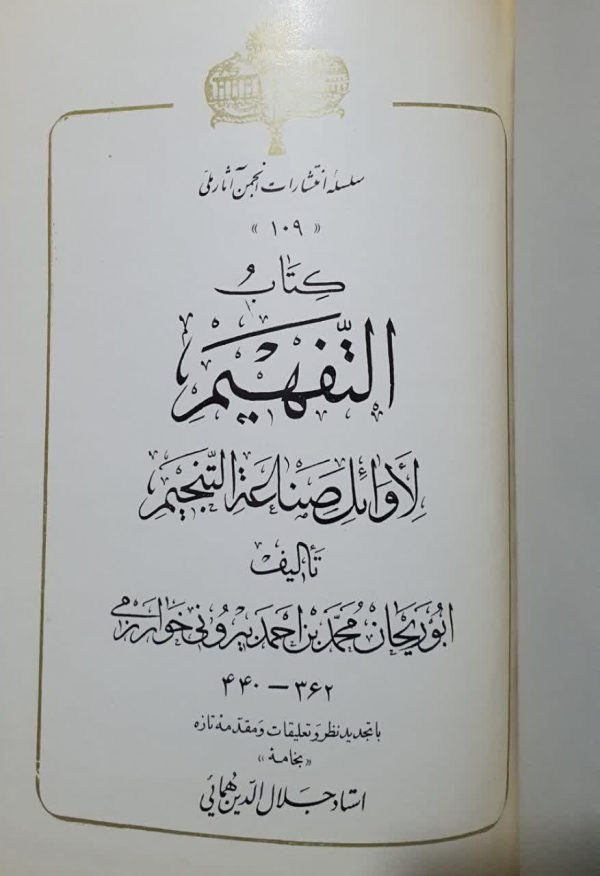 سلسله انتشارات انجمن آثار ملی
« ۱۰۹ »
كِتَابُ
التَّفهيمِ
لِأَوَائِلِ صِنَاعَةِ التَّنجيمِ
تأليف
ابوُرَيحان مُحمّد بن احمد بيرُونی خوارزمی
۳۶۲ – ۴۴۰
با تجدید نظر و تعلیقات و مقدّمهٔ تازه
« بخامهٔ »
استاد جلال الدّین هُمائی